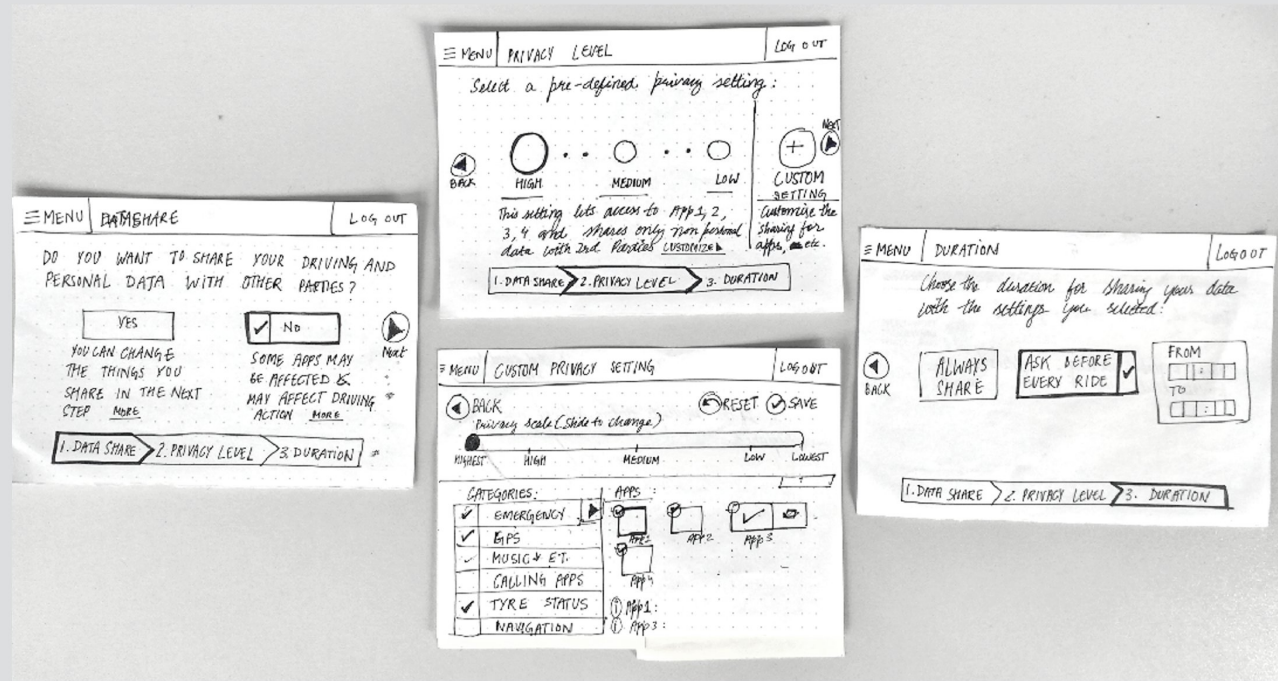 MENU DATASHARE LOG OUT
DO YOU WANT TO SHARE YOUR DRIVING AND
PERSONAL DATA WITH OTHER PARTIES?
YES
NO
YOU CAN CHANGE
THE THINGS YOU
SHARE IN THE NEXT
STEP MORE
SOME APPS MAY
BE AFFECTED &
MAY AFFECT DRIVING
ACTION MORE
Next
1. DATA SHARE 2. PRIVACY LEVEL 3. DURATION
MENU PRIVACY LEVEL LOG OUT
Select a pre-defined privacy setting:
BACK
HIGH MEDIUM LOW
This setting lets access to App 1, 2,
3, 4 and shares only non personal
data with 2nd Parties CUSTOMIZE
NEXT
CUSTOM
SETTING
Customize the
sharing for
apps, etc.
1. DATA SHARE 2. PRIVACY LEVEL 3. DURATION
MENU CUSTOM PRIVACY SETTING LOG OUT
BACK RESET SAVE
Privacy scale (Slide to change)
HIGHEST HIGH MEDIUM LOW LOWEST
CATEGORIES:
EMERGENCY
GPS
MUSIC & ET.
CALLING APPS
TYRE STATUS
NAVIGATION
APPS :
App 1 App 2 App 3
App 4
i App 1 :
i App 3 :
MENU DURATION LOG OUT
Choose the duration for sharing your data
with the settings you selected:
BACK
ALWAYS
SHARE
ASK BEFORE
EVERY RIDE
FROM
:
TO
:
1. DATA SHARE 2. PRIVACY LEVEL 3. DURATION